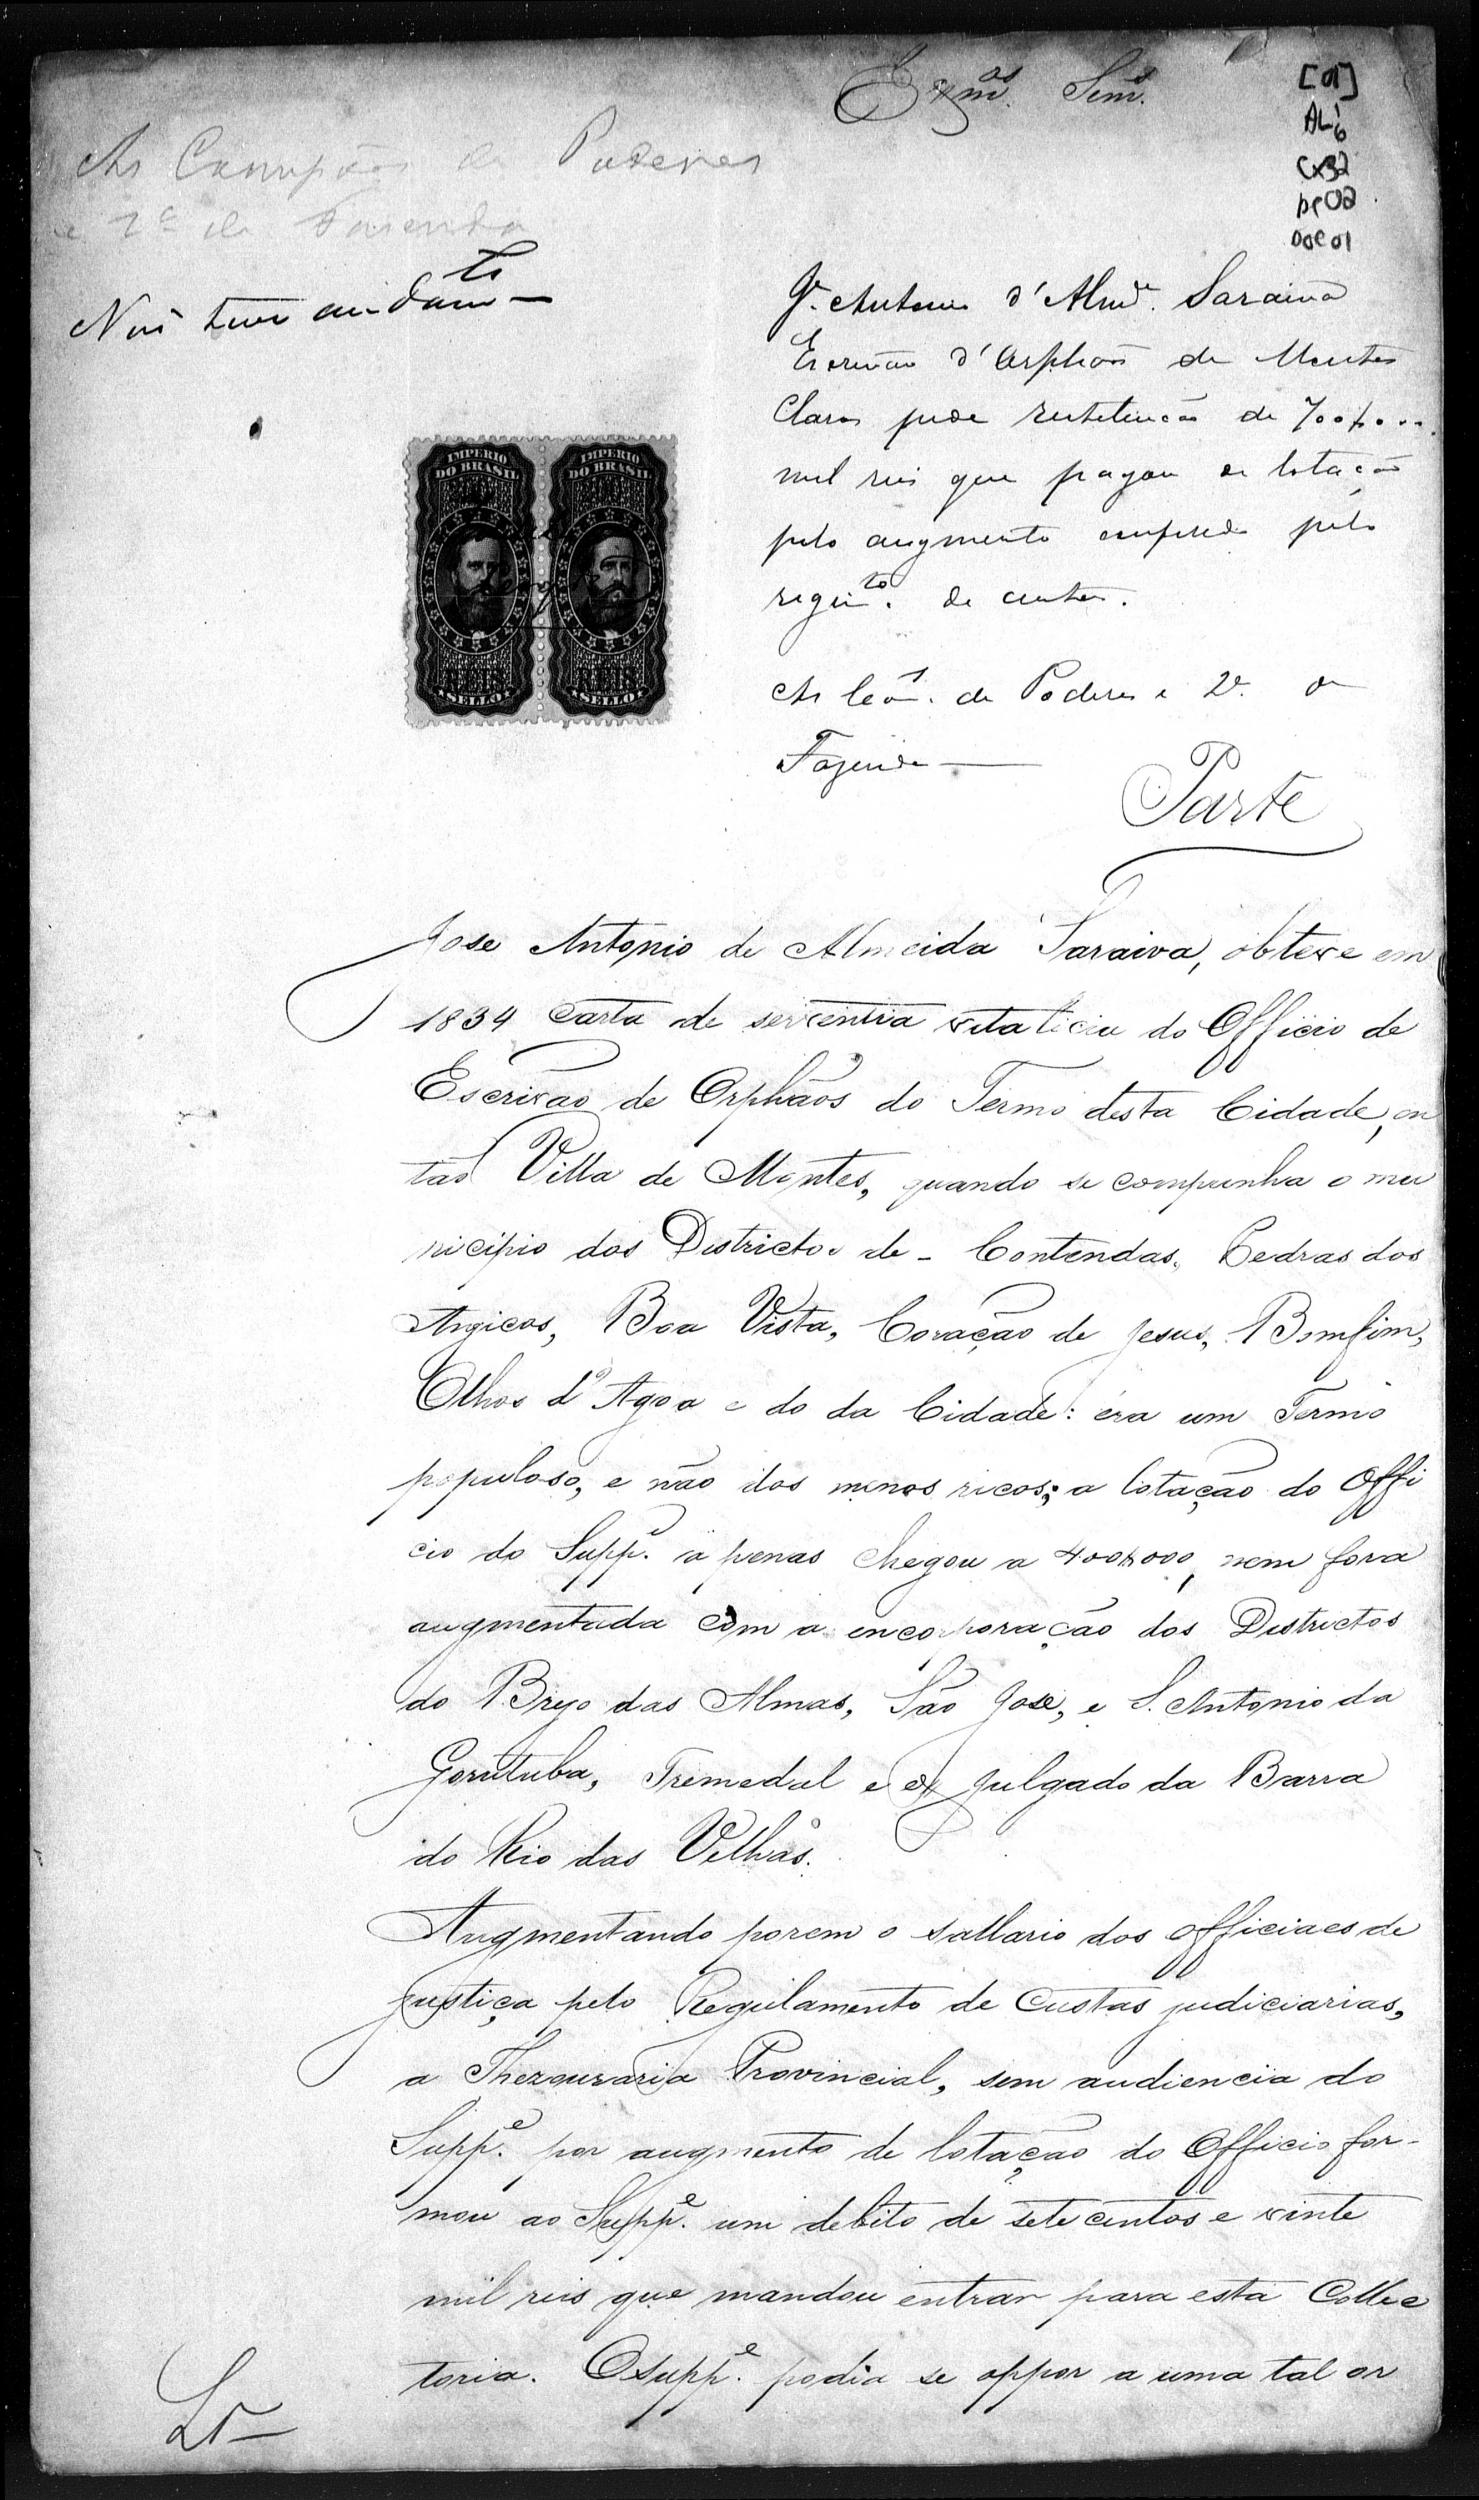 Exm.os Snr.s
[01]
AL1
6
Cx32
pc02
Doc 01
As Commissões de Poderes
e 2ª de Fazenda
Não teve andam.to
J.e Antonio d'Almd.ª Saraiva
Escrivão d'Orphãos de Montes
Claros pede restituição de 700$000
mil reis que pagou de lotação
pelo augmento conferido pelo
regim.to de custas.
As Com.s de Poderes e 2ª de
Fazenda
Parte
IMPERIO DO BRASIL
IMPERIO DO BRASIL
REIS
REIS
SELLO
SELLO
Jose Antonio de Almeida Saraiva, obteve em
1834 Carta de serventia vitalicia do Officio de
Escrivão de Orphãos do Termo desta Cidade, en
tão Villa de Montes, quando se compunha o mu
nicipio dos Districtos de - Contendas, Pedras dos
Angicos, Boa Vista, Coração de Jesus, Bomfim,
Olhos d'Agoa e do da Cidade: éra um Termo
populoso, e não dos menos ricos; a lotação do Offi
cio do Supp.e apenas chegou a 400$000, nem fora
augmentada com a encorporação dos Districtos
do Brejo das Almas, São José, e S. Antonio da
Gorutuba, Tremedal e ex Julgado da Barra
do Rio das Velhas.
Augmentando porem o sallario dos officiaes de
justiça pelo Regulamento de Custas judiciarias,
a Thezouraria Provincial, sem audiencia do
Supp.e por augmento de lotação do Officio for-
mou ao Supp.e um debito de sete centos e vinte
mil reis que mandou entrar para esta Collec
toria. O supp.e podia se oppor a uma tal or